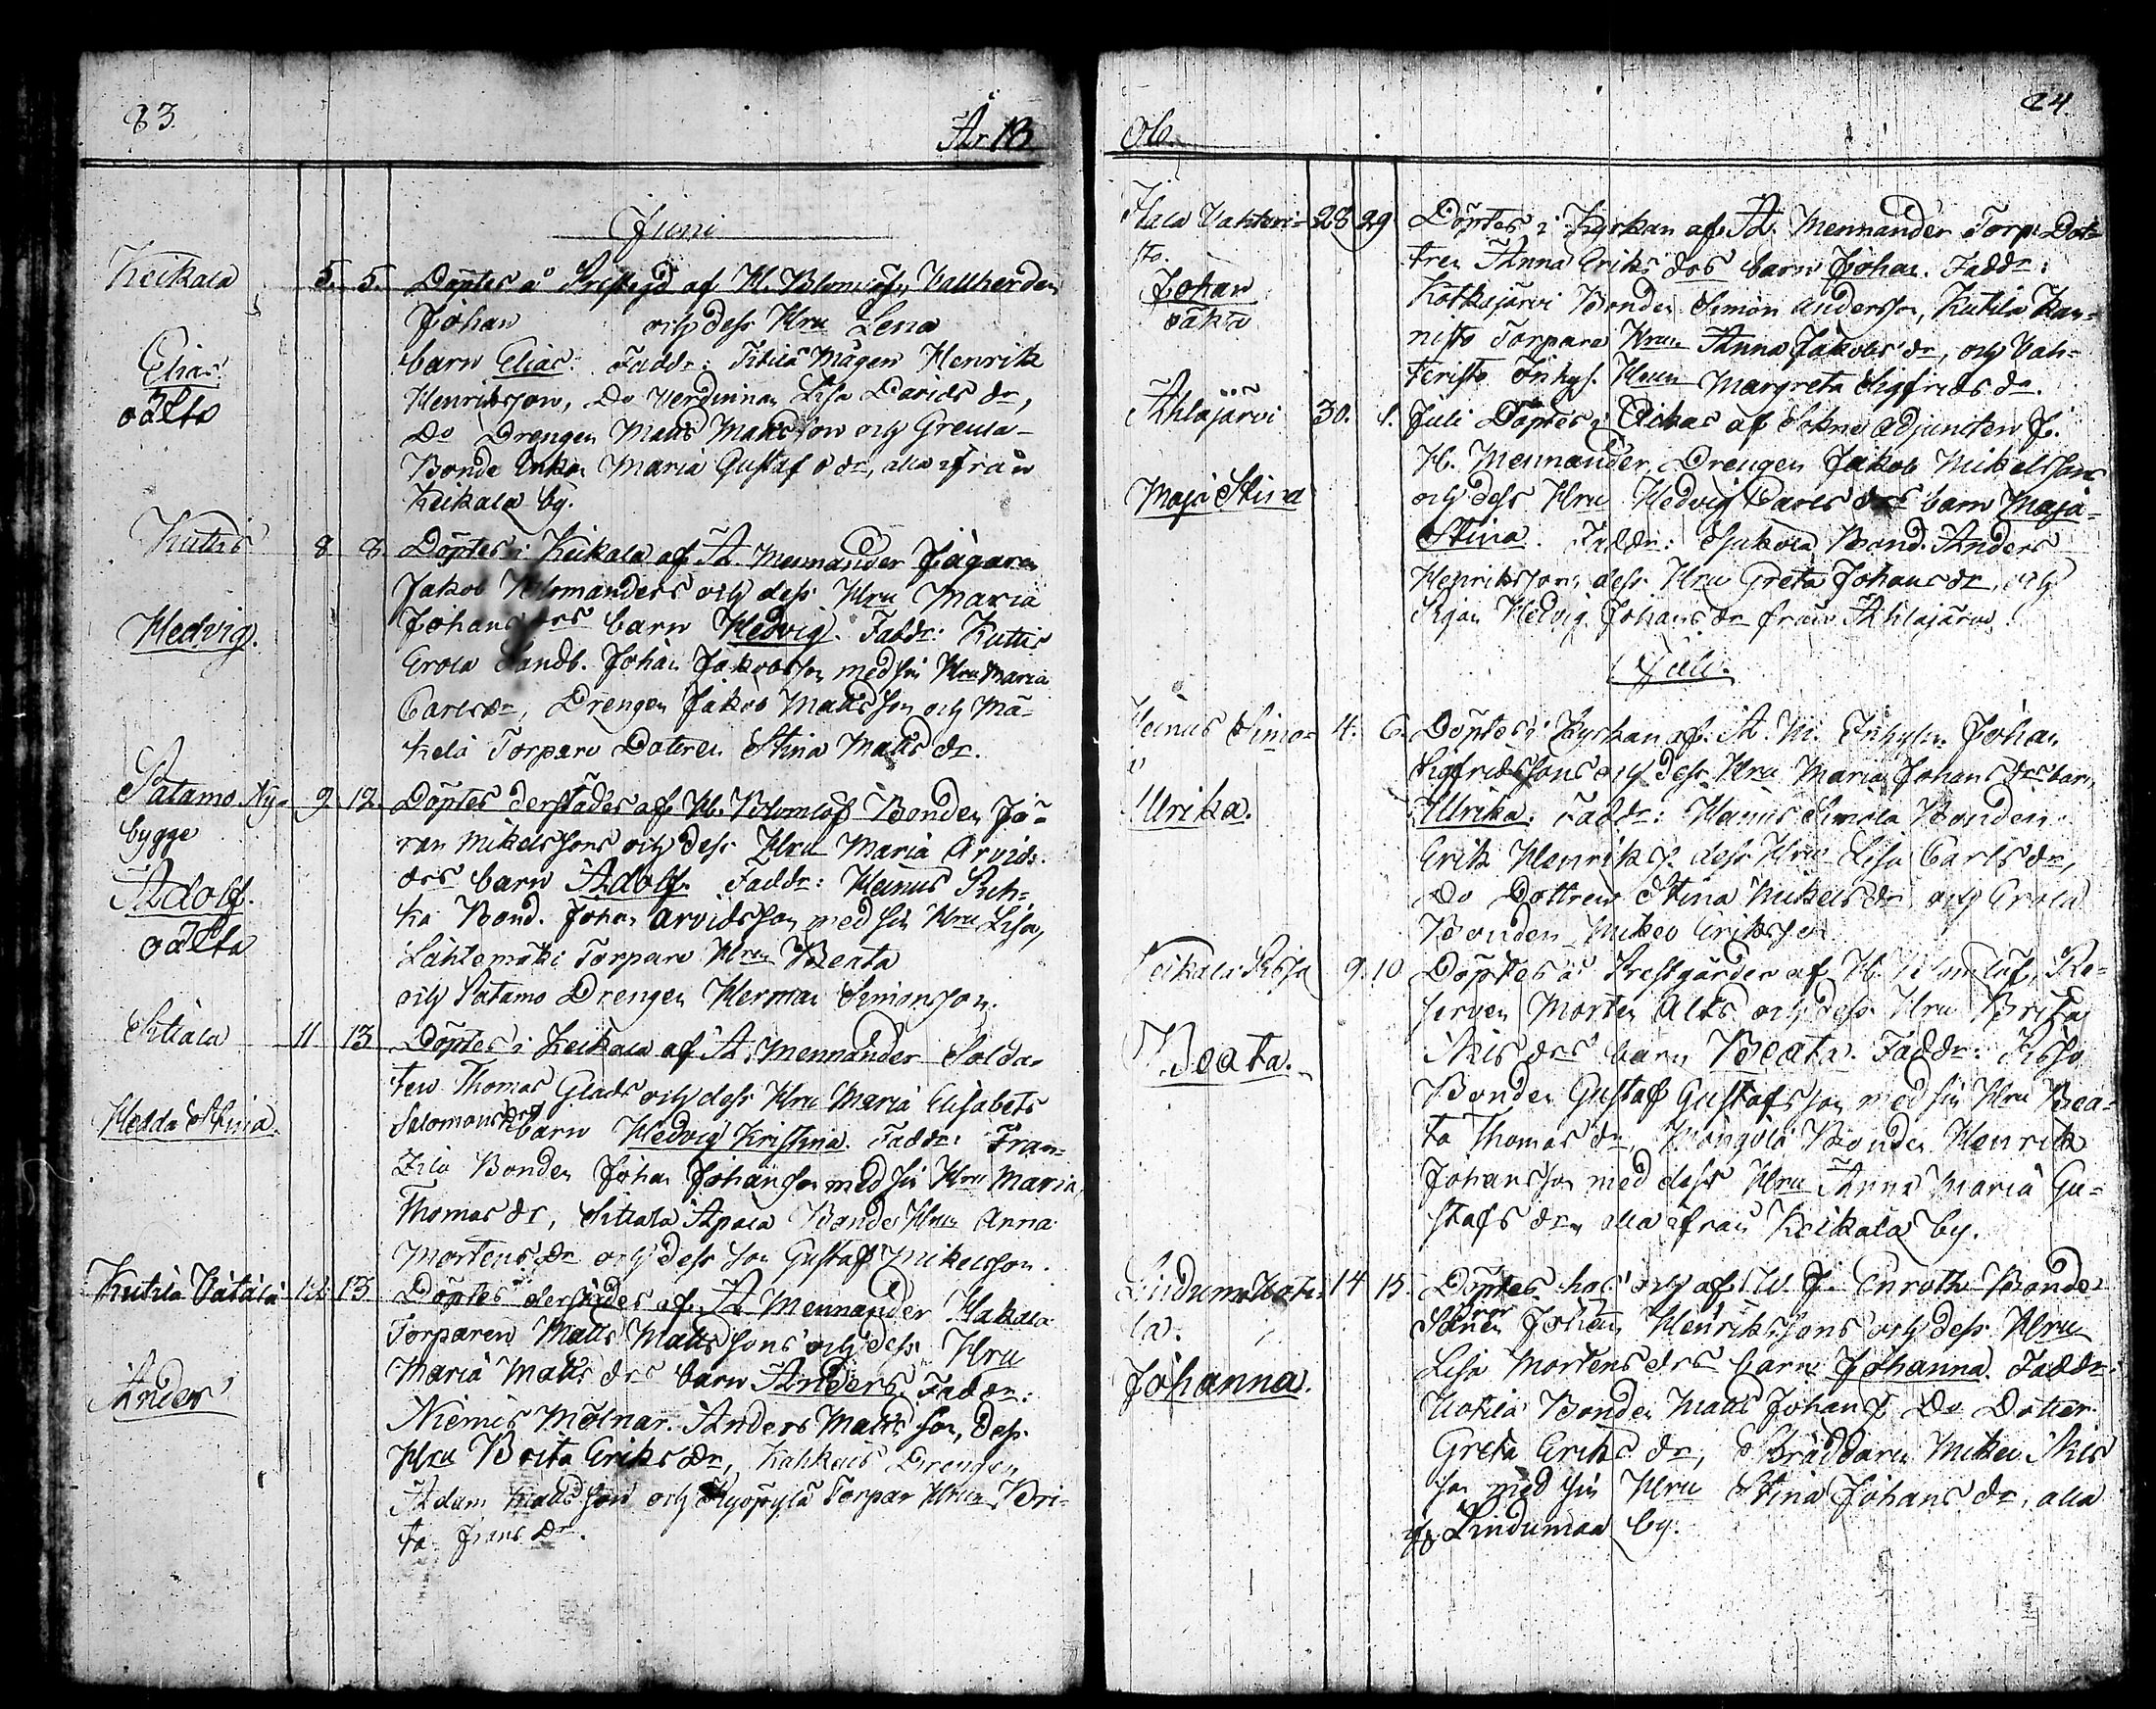 23.
År 18
Juni
Keikala 5. 5. Döptes å Prestegd af H. Blomlöf, Vallherden
Johan och dess Hru Lena
Elias barn Elias: Faddr: Titilä Mågen Henrik
oäkta Henriksson, Do Verdinnan Lisa Davids dr,
Do Drengen Matts Mattsson och Greula
Bonde Enkan Maria Gustafs dr, alla ifrån
Keikala by.
Kuttis 8 8 Döptes i Keikala af A. Mennander Jägaren
Jakob Homanders och dess Hru Maria
Hedvig. Johans drs barn Hedvig. Faddr: Kuttis
Erola Landb. Johan Jakobsson med sin Hru Maria
Carlsdr, Drengen Jakob Mattsson och Mä-
kelä Torpare Dotren Stina Matts dr.
Satamo Ny- 9 12. Döptes derstädes af H. Blomlöf Bonden Jö-
bygge ran Mikelssons och dess Hru Maria Arvids
Adolf. drs barn Adolf. Faddr: Heinus
oäkta Bond. Johan Arvidsson med sin Hru Lisa,
Lähtemäki Torpare Hrun Beata
och Satamo Drengen Herman Simonsson.
Sitiala 11 13 Döptes i Keikala af A. Mennander Solda-
ten Thomas Glads och dess Hru Maria Elisabets
Hedda Stina. Salomons drs barn Hedvig Kristina. Faddr: Fran-
tzila Bonden Johan Johansson med sin Hru Maria
Thomas dr, Sitiala Apaia Bonde Hrun Anna
Mortens dr och dess son Gustaf Mikelsson.
Kutila Vätälä 12 13 Döptes derstädes af A Mennander Hakala
Torparen Matts Mattssons och dess Hru
Anders Maria Matts drs barn Anders. Faddr:
Niemis Mölnar. Anders Mattsson, dess
Hru Brita Eriks dr, Kahkais Drengen
Adam Mattsson och Torpar Hrun Bri-
ta Frans dr.
24.
06.
Vahteri- 28 29 Döptes i Kyrkan af A. Mennander Torp. Dot-
sto. tren Anna Eriks drs barn Johan. Faddr:
Johan Kotkajärvi Bonden Simon Andersson, Kutila Kan-
oäkta nisto Torpare Hrun Anna Jakobs dr, och Vah-
teristo Inhys. Hrun Margreta Sigfrids dr.
Ahlajärvi 30. 1. Juli Döptes i Eikas af Sokne Adjuncten J.
H. Mennander Drengen Jakob Mikelssons
Maja Stina och dess Hru Hedvig Carls drs barn Maja
Stina. Faddr: Bond. Anders
Henriksson, dess Hru Greta Johans dr, och
Pigan Hedvig Johans dr från Ahlajärvi.
Juli.
Heinus Simo- 4. 6. Döptes i Kyrkan af A. M. Inhysn. Johan
Sigfridssons och dess Hru Maria Johans drs barn
Ulrika. Ulrika. Faddr: Heinus Simola Bonden
Erik Henriks. dess Hru Lisa Carls dr,
Do Dottren Stina Mikels dr och Erola
Bonden Mikel Eriksson
Keikala 9. 10 Döptes å Prestgården af H. Blomlöf, Re-
serven Morten Alds och dess Hru Brita
Beata. Nils drs barn Beata. Faddr:
Bonden Gustaf Gustafsson med sin Hru Bea-
ta Thomas dr, Bonden Henrik
Johansson med dess Hru Anna Maria Gu-
stafs dr, alla ifrån Keikala by.
Linduma Uoti- 14 15. Döptes hos och af W. J. Enroth Bonde
la. Sonen Johan Henrikssons och dess Hru
Johanna. Lisa Mortens drs barn Johanna. Faddr:
Uotila Bonden Matts Johans. Do Dotter
Greta Eriks dr, Skräddaren Mikel Nils
son med sin Hru Stina Johans dr, alla
if. Lindumaa by.